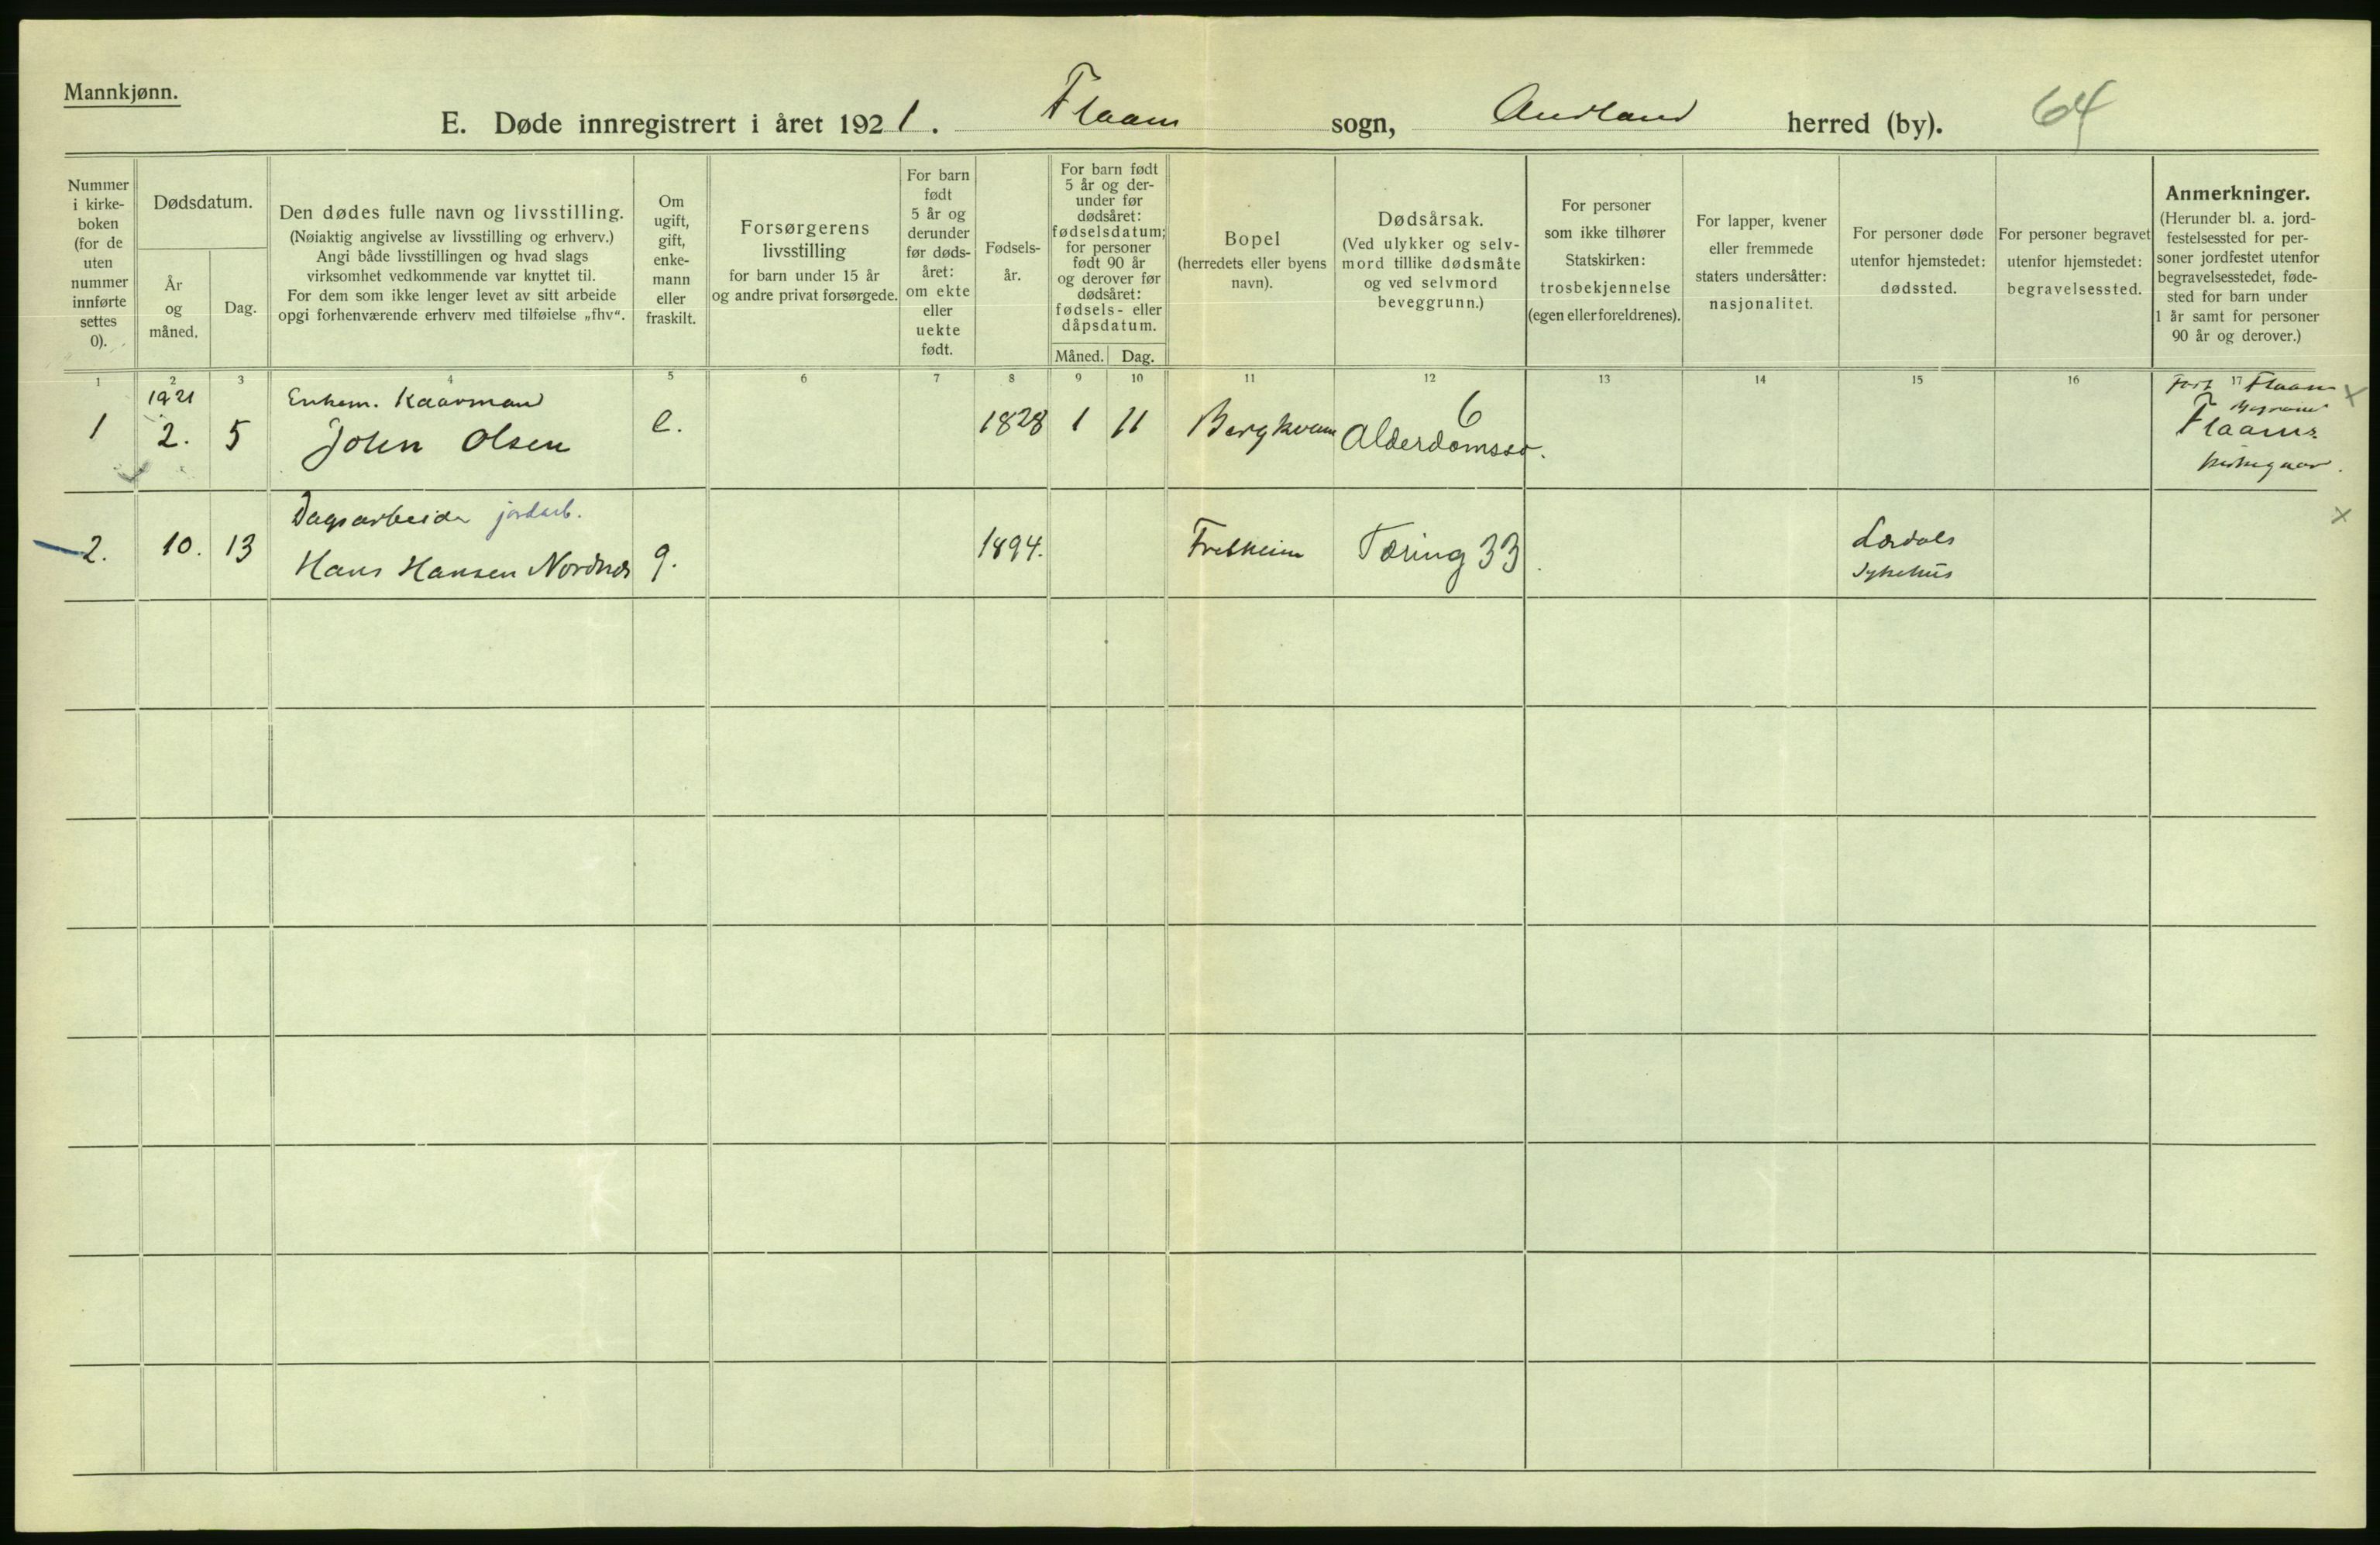 Mannkjønn.
E. Døde innregistrert i året 1921. Flaam sogn, Aurland herred (by). 64
Nummer
i kirke-
boken
(for de
uten
nummer
innførte
settes
0).
Dødsdatum.
År
og
måned.
Dag.
Den dødes fulle navn og livsstilling.
(Nøiaktig angivelse av livsstilling og erhverv.)
Angi både livsstillingen og hvad slags
virksomhet vedkommende var knyttet til.
For dem som ikke lenger levet av sitt arbeide
opgi forhenværende erhverv med tilføielse „fhv“.
Om
ugift,
gift,
enke-
mann
eller
fraskilt.
Forsørgerens
livsstilling
for barn under 15 år
og andre privat forsørgede.
For barn
født
5 år og
derunder
før døds-
året:
om ekte
eller
uekte
født.
Fødsels-
år.
For barn født
5 år og der-
under før
dødsåret:
fødselsdatum;
for personer
født 90 år
og derover før
dødsåret:
fødsels- eller
dåpsdatum.
Måned. Dag.
Bopel
(herredets eller byens
navn).
Dødsårsak.
(Ved ulykker og selv-
mord tillike dødsmåte
og ved selvmord
beveggrunn.)
For personer
som ikke tilhører
Statskirken:
trosbekjennelse
(egen eller foreldrenes).
For lapper, kvener
eller fremmede
staters undersåtter:
nasjonalitet.
For personer døde
utenfor hjemstedet:
dødssted.
For personer begravet
utenfor hjemstedet:
begravelsessted.
Anmerkninger.
(Herunder bl. a. jord-
festelsessted for per-
soner jordfestet utenfor
begravelsesstedet, føde-
sted for barn under
1 år samt for personer
90 år og derover.)
1 2 3 4 5 6 7 8 9 10 11 12 13 14 15 16 17
1921 Enkem. Kaarmand 6 Flaam x
1 2. 5 John Olsen e. 1828 1 11 Bergkvam Alderdomssv. Flaams
kirkegaar.
Dagsarbeider jordarb. x
2. 10. 13 Hans Hansen Nordnes g. 1894. Fretheim Tæring 33. Lærdals
Sykehus